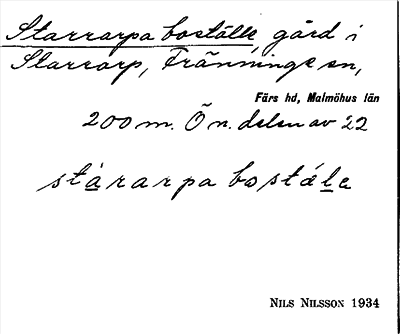 Starrarpa boställe, gård i
Starrarp, Tranninge sn,
Färs hd, Malmöhus län
200 m. Ö n. delen av 22
stárarpa bostále
NILS NILSSON 1934